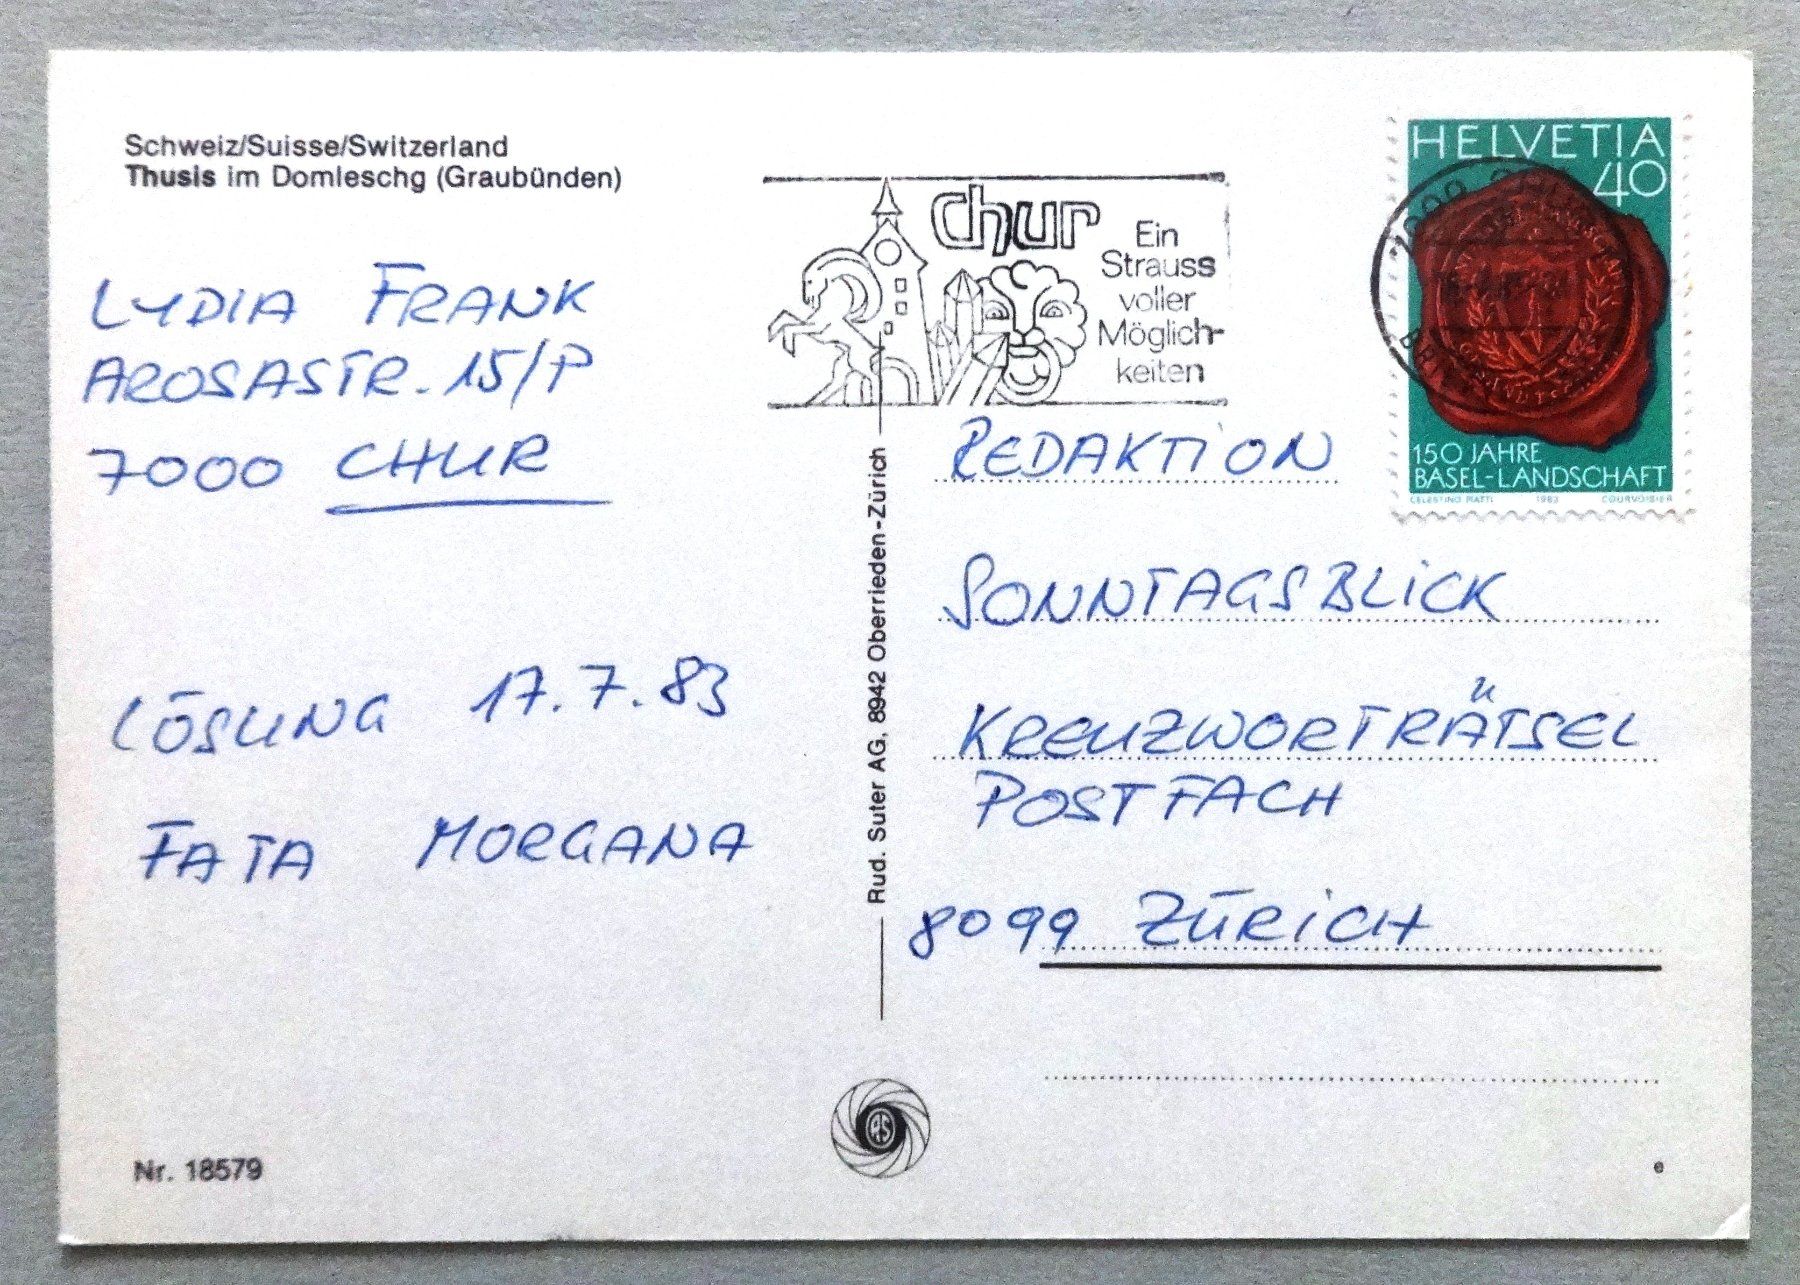 Schweiz/Suisse/Switzerland
Thusis im Domleschg (Graubünden)
LYDIA FRANK
AROSASTR. 15/P
7000 CHUR
LÖSUNG 17.7.83
FATA MORGANA
Nr. 18579
Rud. Suter AG, 8942 Oberrieden-Zürich
chur
Ein
Strauss
voller
Möglich-
keiten
HELVETIA
40
150 JAHRE
BASEL-LANDSCHAFT
CELESTINO PIATTI 1983 COURVOISIER
REDAKTION
SONNTAGSBLICK
KREUZWORTRÄTSEL
POSTFACH
8099 ZÜRICH
RS
e